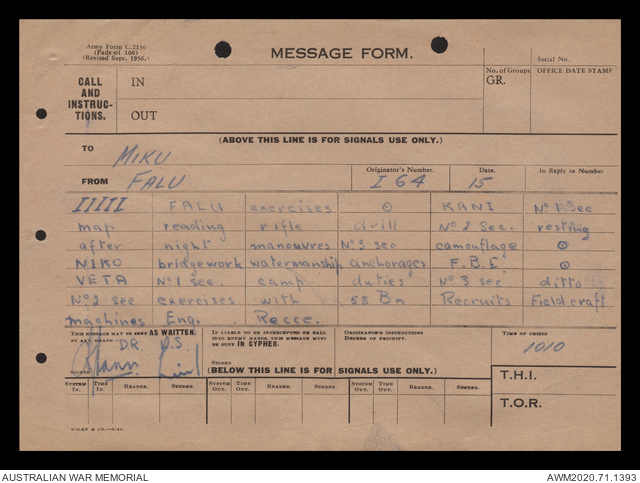 Army Form C.2130
(Pads of 100)
(Revised Sept. 1936.)
MESSAGE FORM.
Serial No.
CALL AND INSTRUC-TIONS.
IN
OUT
No. of Groups
GR.
OFFICE DATE STAMP
(ABOVE THIS LINE IS FOR SIGNALS USE ONLY.)
TO MIKU
FROM FALU
Originator's Number. I 64
Date. 15
In Reply to Number
IIIII FALU exercises ⊙ KANI Nº 1 Sec
map reading rifle drill Nº 2 Sec. resting
after night manoeuvres Nº 3 sec camouflage ⊙
NIKO bridgework watermanship anchorages F.B.E. ⊙
VETA Nº 1 sec. camp duties Nº 3 sec ditto
Nº 2 sec exercises with 58 Bn Recruits Fieldcraft
machines Eng. Recce.
THIS MESSAGE MAY BE SENT AS WRITTEN.
BY ANY MEANS. DR. D.S.
SIGNED
IF LIABLE TO BE INTERCEPTED OR FALL
INTO ENEMY HANDS, THIS MESSAGE MUST
BE SENT IN CYPHER.
SIGNED
ORIGINATOR'S INSTRUCTIONS
DEGREE OF PRIORITY.
TIME OF ORIGIN
1010
(BELOW THIS LINE IS FOR SIGNALS USE ONLY.)
T.H.I.
T.O.R.
SYSTEM IN. TIME IN. READER. SENDER. SYSTEM OUT. TIME OUT. READER. SENDER. SYSTEM OUT. TIME OUT. READER. SENDER.
AUSTRALIAN WAR MEMORIAL
AWM2020.71.1393